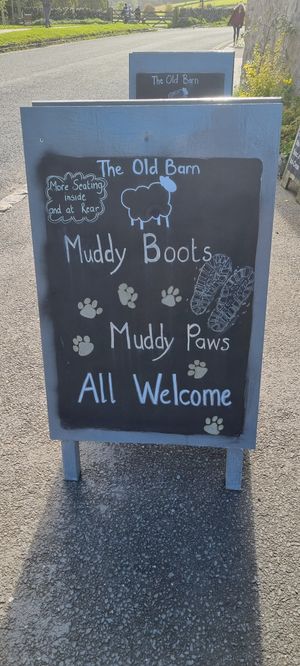 The Old Barn
The Old Barn
More Seating
inside
and at Rear
Muddy Boots
Muddy Paws
All Welcome